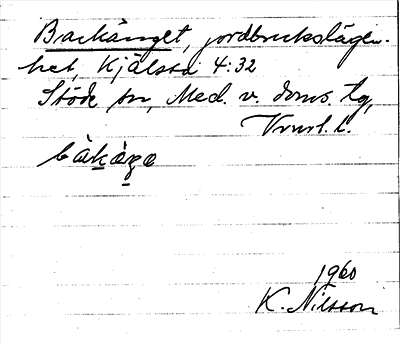 Backänget, jordbrukslägen-
het, Kjälsta 4:32
Stöde sn, Med. v. doms. tg,
Vnrl. l.
båkäŋə
1960
K. Nilsson